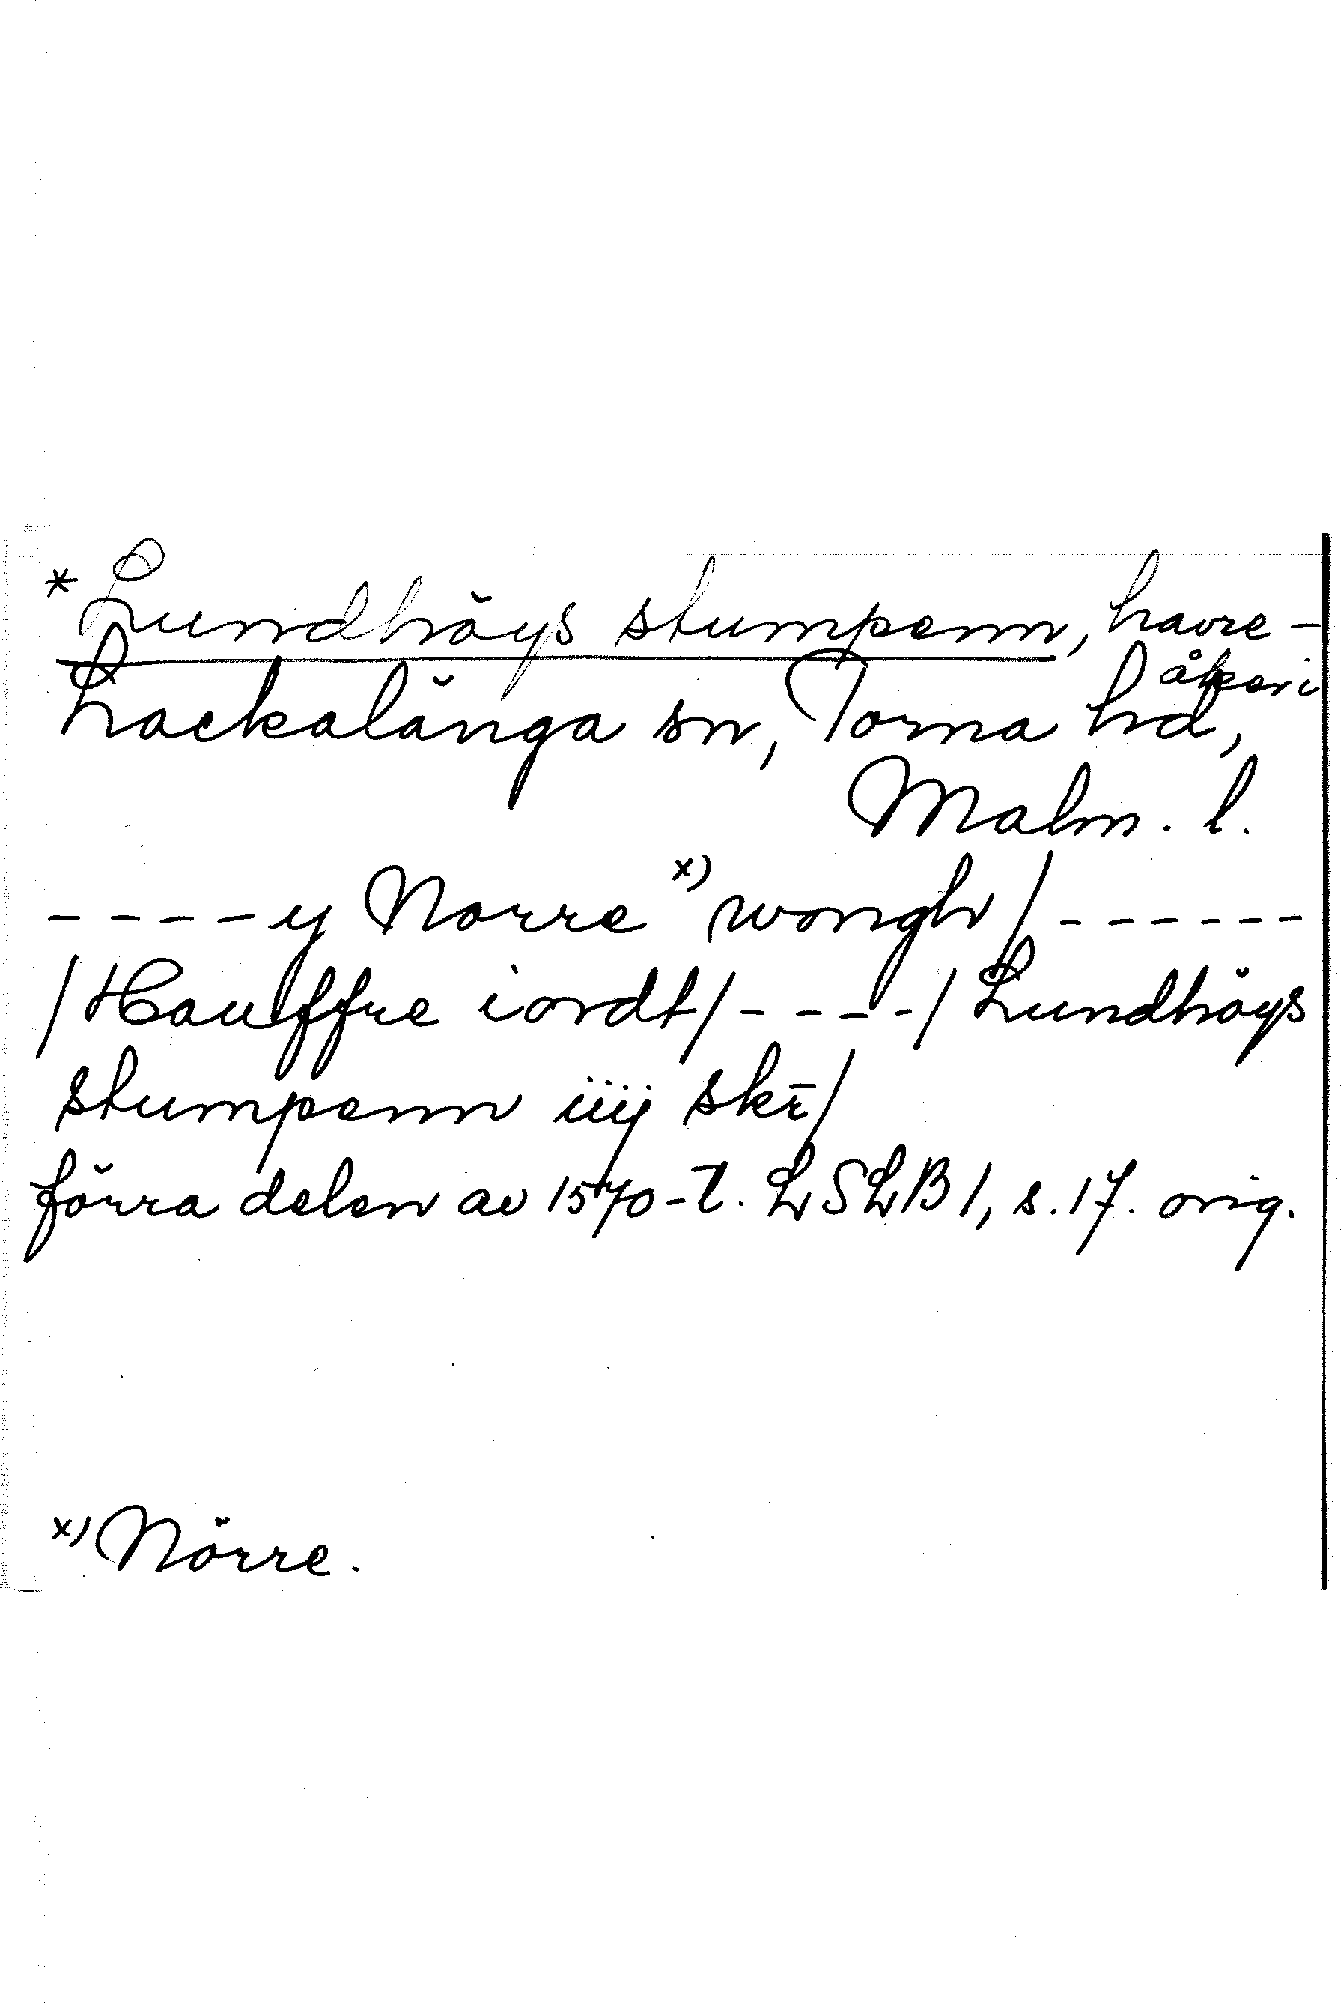 * Lundhöys stumpenn, havre-
åker i
Lackalänga sn, Torna hd,
Malm. l.
----y Norre x) wongh/------
/Hauffre iordt/----/Lundhöys
stumpenn iiij skr̄/
förra delen av 1570-t. LSLB 1, s. 17. orig.
x) Nörre.